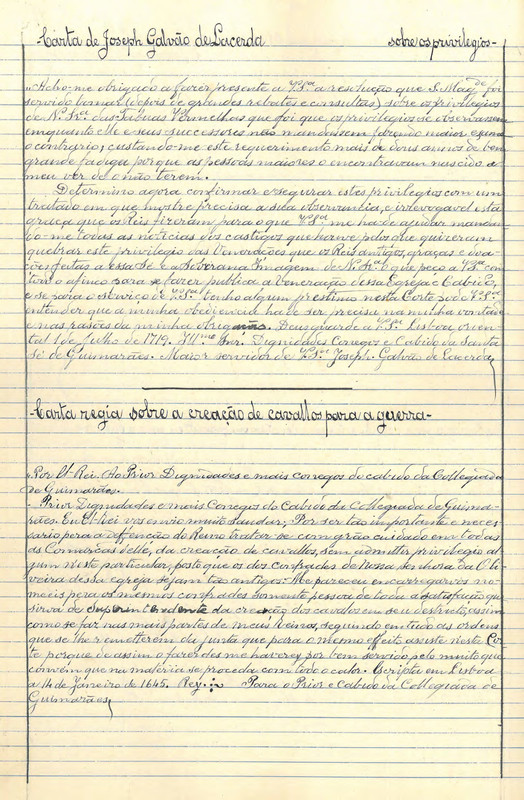 Carta de Joseph Galvão de Lacerda sobre os privilegios
"Acho-me obrigado a fazer presente a V. Sra a resolução que S. Magde foi
servido tomar (depois de grandes rebates e consultas) sobre os privilegios
de N. Sra das Taboas Vermelhas que foi que os privilegios se observassem
emquanto elle e seus successores não mandassem fazendo maior exame
o contrario; custando-me este requerimento mais de dous annos de bem
grande fadiga porque as pessoas maiores o encontravam nascido a
meu ver de o não terem.
Determino agora confirmar e segurar estes privilegios com um
tratado em que mostre precisa a sua observancia, e irrevogavel esta
graça que os Reis fizeram para o que V. Sra me ha de ajudar mandan
do-me todas as noticias dos castigos que houve pelos que quizeram
quebrar este privilegio das doações que os Reis antigos, graças e doa
ções feitas a essa Sé e a Soberana Imagem de N. Sra o que peço a V. Sra com
todo o afinco para se fazer publica a veneração dessa Egreja e Cabido,
e se para o serviço de V. Sra tenho algum prestimo nesta Corte pode V. Sra
entender que a minha obediencia ha de ser precisa na minha vontade
e nas rasões da minha obrigação. Deus guarde a V. Sra Lisboa orien
tal 1 de Julho de 1719. Illmo Snr. Dignidades Conegos e Cabido da Santa
Sé de Guimarães. Maior servidor de V. Sra Joseph Galvão de Lacerda,
Carta regia sobre a creação de cavallos para a guerra
"Por El-Rei. Ao Prior Dignidades e mais conegos do cabido da Collegiada
de Guimarães.
Prior Dignidades e mais Conegos do Cabido da Collegiada de Guima-
rães. Eu El-Rei vos envio muito saudar; Por ser tão importante e neces-
sario pera a deffenção do Reino tratar-se com grão cuidado em todas
as Comarcas delle, da creação de cavallos, sem admittir privilegio al
gum neste particular, posto que os dos confrades de Nossa Senhora da Oli
veira dessa egreja sejam tão antigos. Me pareceu encarregarvos no-
meeis pera os mesmos confrades somente pessoa de toda a satisfação que
sirva de Superintendente da creação dos cavalos em seu destricto, assim
como se faz nas mais partes de meus Reinos, segundo em tudo as ordens
que se lhe remetterem da junta que para o mesmo effeito assiste nesta Cor
te porque de assim o fazerdes me haverey por bem servido pelo muito que
convém que na matéria se proceda com todo o calor. Escripta em Lisboa
a 14 de Janeiro de 1645. Rey. Para o Prior e Cabido da Collegiada de
Guimarães,